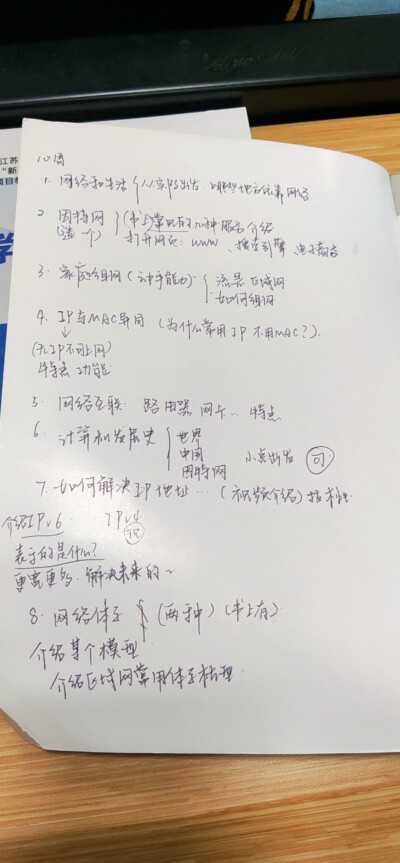 江苏
"新
项目
学
10周
1. 网络和生活 { 从实际出发,哪些地方依靠网络
2 因特网 { (书上)常见的几种服务介绍
(选一个) 打开网页:www、搜索引擎、电子商务
3. 家庭组网(动手能力) { 流量 区域网
如何组网
4. IP与MAC异同 (为什么常用IP 不用MAC?).
↓
(无IP不可上网)
特点 功能
5. 网络互联: 路由器 网卡... 特点
6. 计算机发展史 { 世界
中国
因特网
小点出发 可
7. 如何解决IP地址... (视频介绍) 技术性.
介绍IPv6 IPv4
表示的是什么?
更需更多. 解决未来的~
8. 网络体系 { (两种) (书上有)
介绍某个模型
介绍区域网常用体系